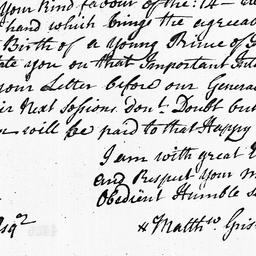 your kind favour of the: 14 –
hand which brings the agreea
Birth of a young Prince of
ate you on that Important
your Letter before our Genera
ir Next Sessions don't Doubt but
will be paid to that Happy
I am with great
and Respect your m
Obedient Humble s
Matth.w Gris
Esq.r